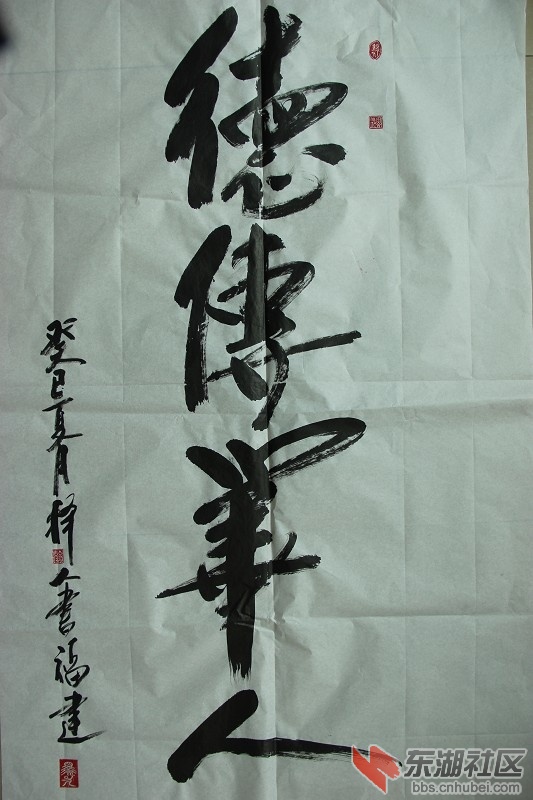 德傳華人
癸巳夏月
人書福建
东湖社区
bbs.cnhubei.com